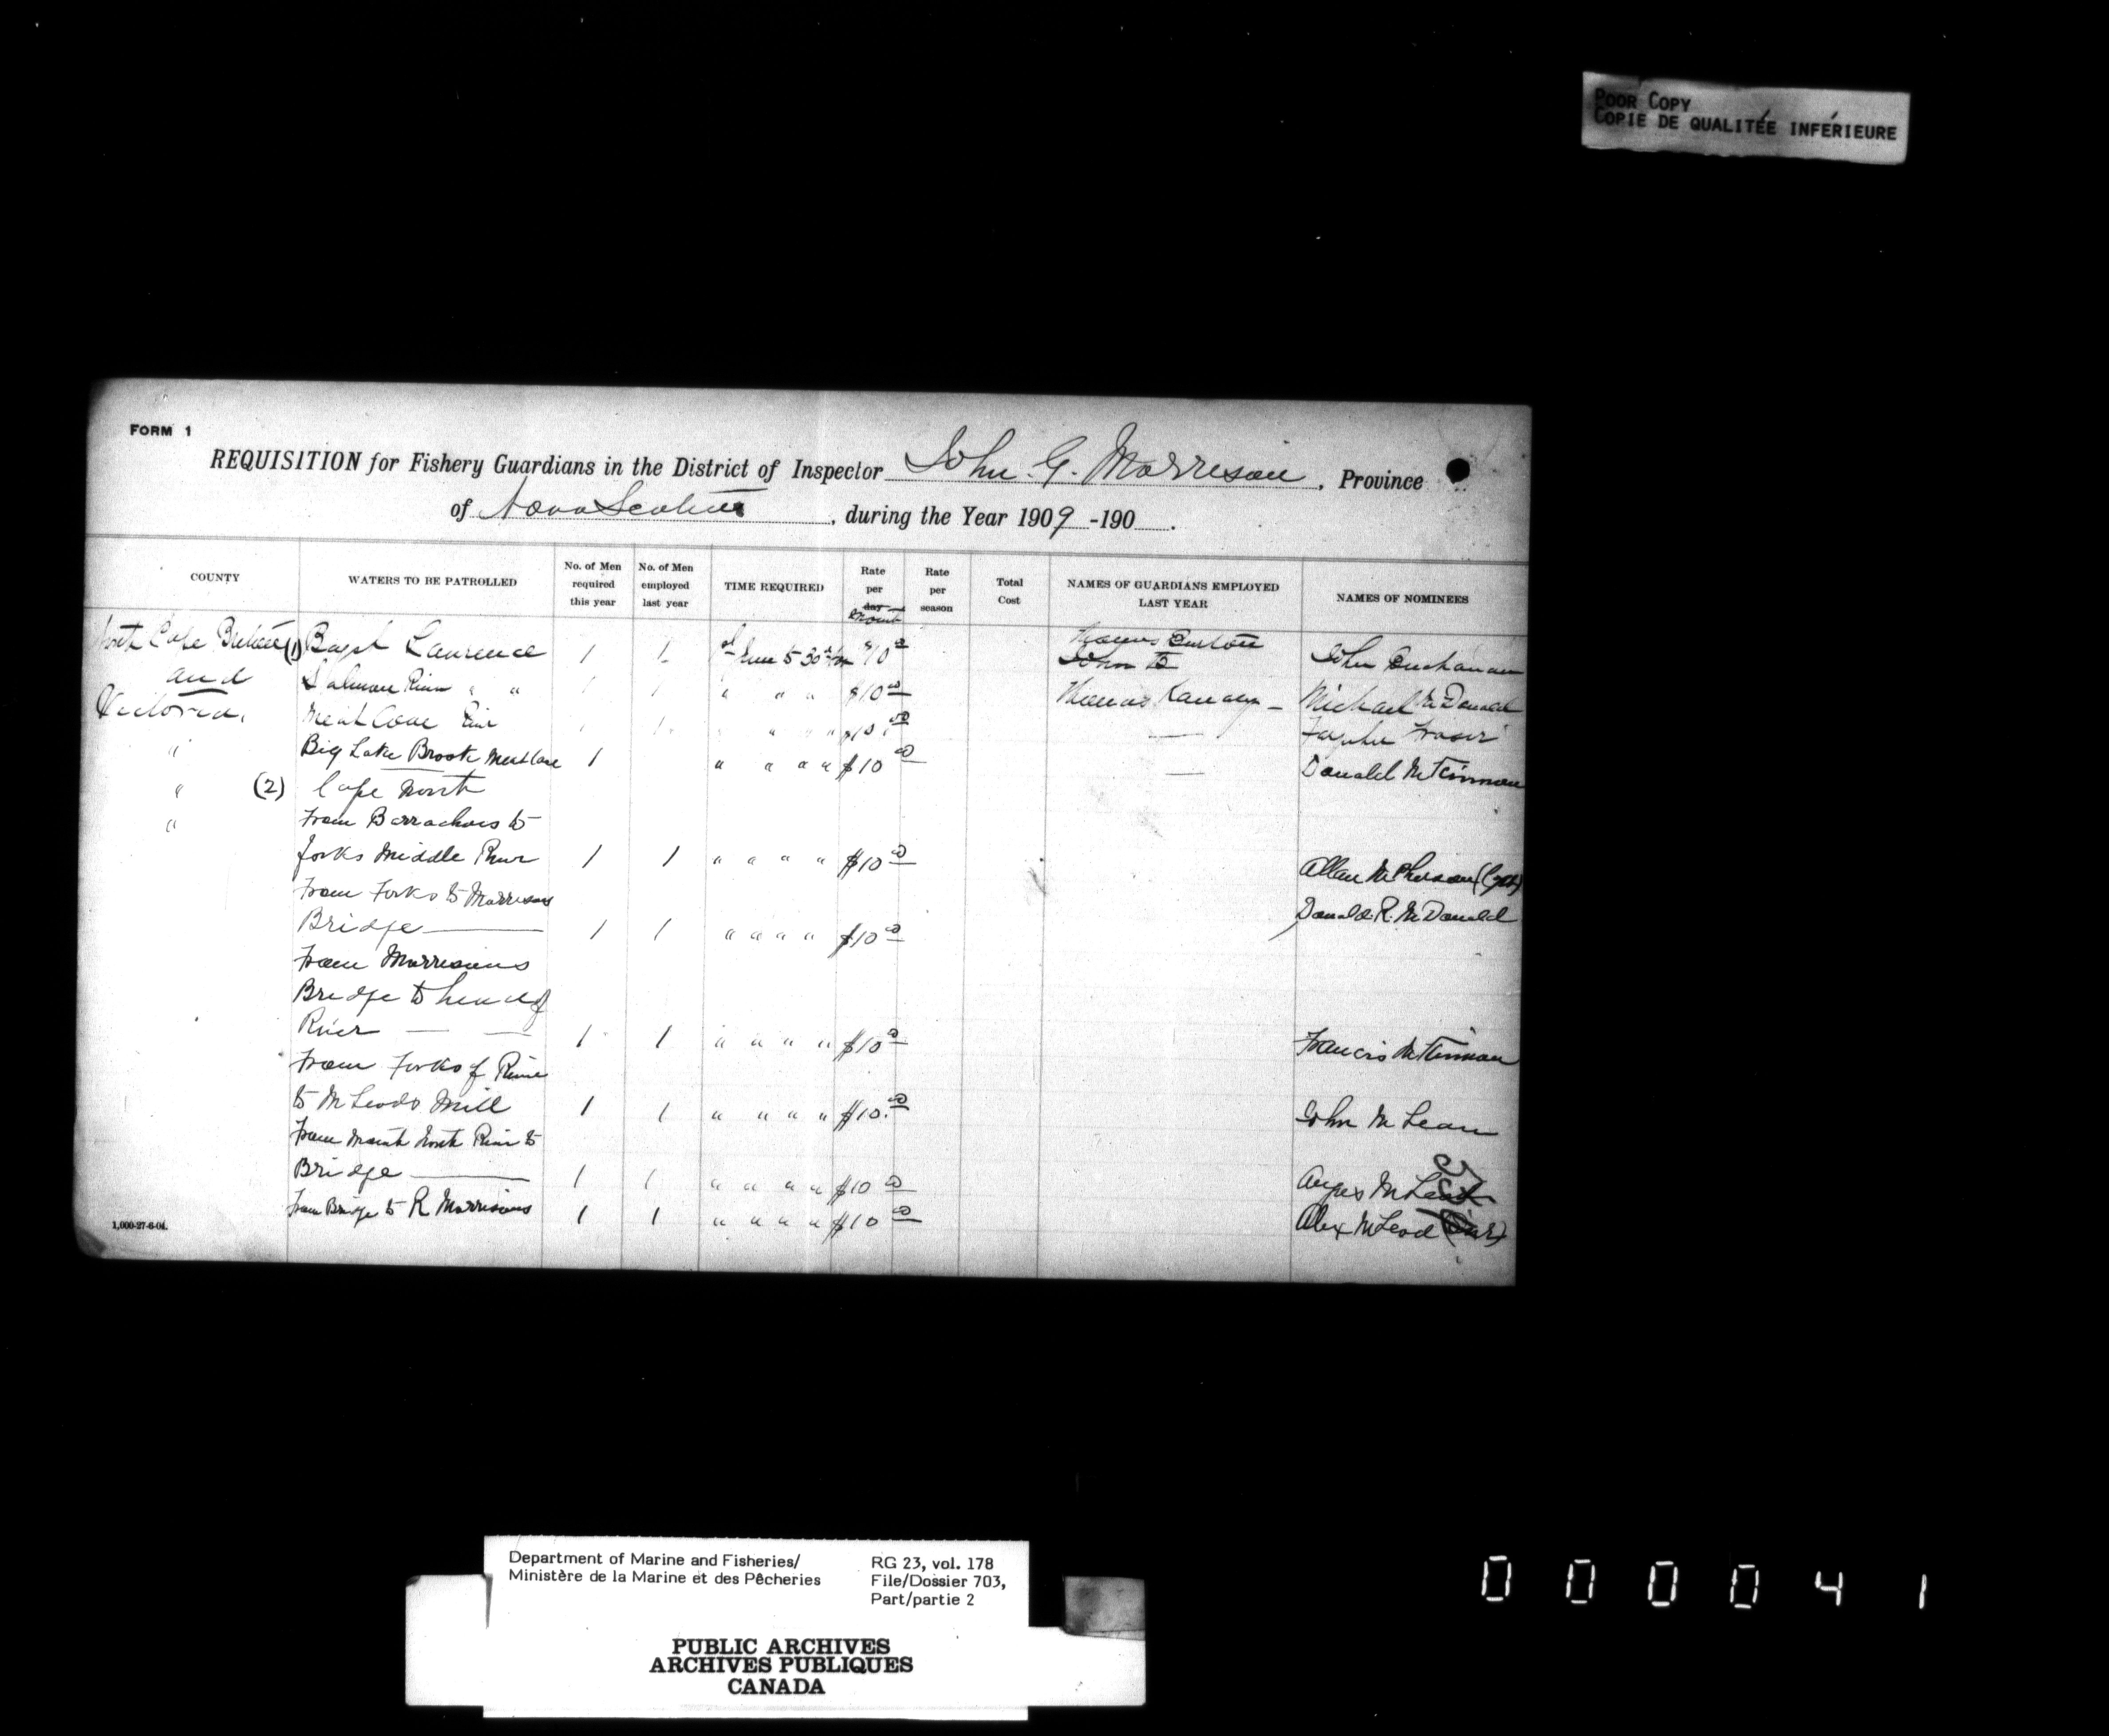 POOR COPY
COPIE DE QUALITÉE INFÉRIEURE
FORM 1
REQUISITION for Fishery Guardians in the District of Inspector John G. Morrison, Province
of Nova Scotia, during the Year 1909-190 .
COUNTY WATERS TO BE PATROLLED No. of Men required this year No. of Men employed last year TIME REQUIRED Rate per day month Rate per season Total Cost NAMES OF GUARDIANS EMPLOYED LAST YEAR NAMES OF NOMINEES
North Cape Breton (1) Bay St Laurence 1 1 $10 00 John Buchanan
and Salmon River " " 1 1 " " " $10 00 Michael McDonald
Victoria, Meat Cove 1 1 " " " $10.00 — Fraser
" Big Lake Brook Meat Cove 1 " " " " $10 00 — Donald McKinnon
" (2) Cape North
" From Barrachois to
forks Middle River 1 1 " " " " $10 00 Allan McPherson
From Forks to Morrisons Donald R. McDonald
Bridge — 1 1 " " " " $10 00
From Morrisons
Bridge to head of
River — — 1 1 " " " " $10 00 Francis McKinnon
From Forks of River
to McLeods Mill 1 1 " " " " $10.00 John McLean
From Mouth North River to
Bridge — 1 1 " " " " $10 00 Angus
From Bridge to R Morrisons 1 1 " " " " $10 00 Alex McLeod
1,000-27-6-04.
Department of Marine and Fisheries/
Ministère de la Marine et des Pêcheries
RG 23, vol. 178
File/Dossier 703,
Part/partie 2
PUBLIC ARCHIVES
ARCHIVES PUBLIQUES
CANADA
000041